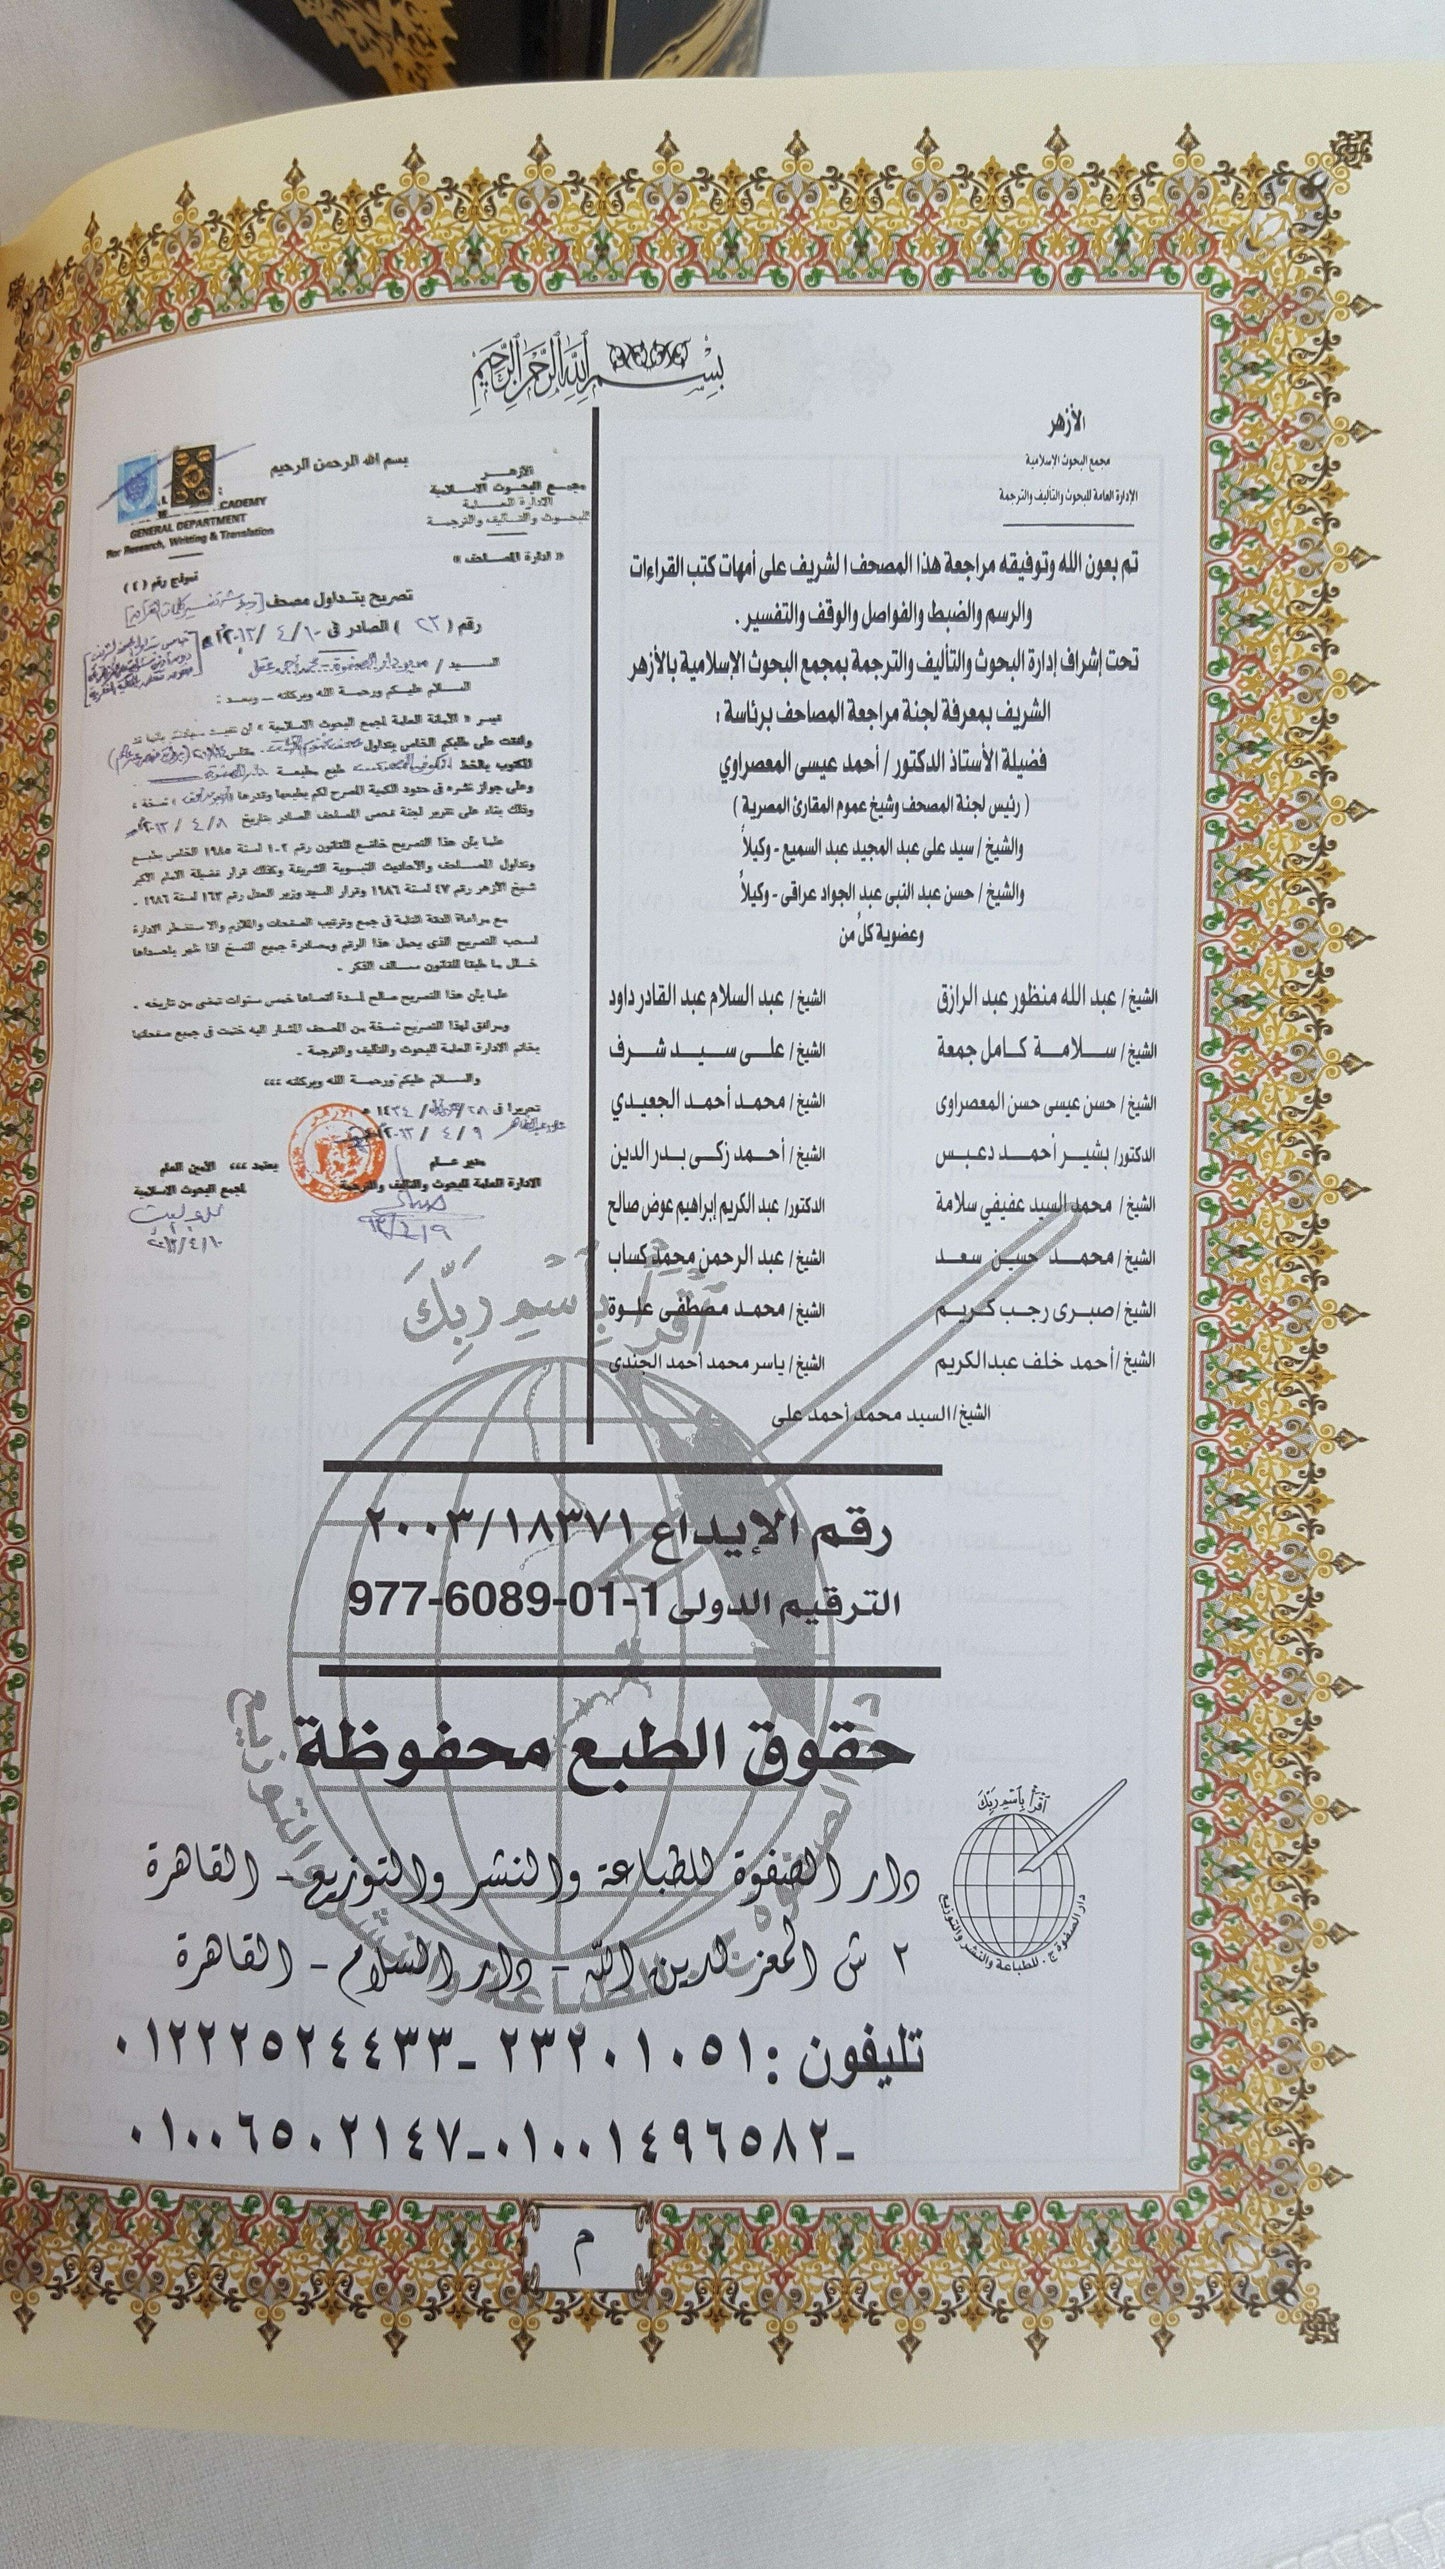 بسم الله الرحمن الرحيم
الأزهر
مجمع البحوث الإسلامية
الإدارة العامة للبحوث والتأليف والترجمة
تم بعون الله وتوفيقه مراجعة هذا المصحف الشريف على أمهات كتب القراءات
والرسم والضبط والفواصل والوقف والتفسير .
تحت إشراف إدارة البحوث والتأليف والترجمة بمجمع البحوث الإسلامية بالأزهر
الشريف بمعرفة لجنة مراجعة المصاحف برئاسة :
فضيلة الأستاذ الدكتور / أحمد عيسى المعصراوي
( رئيس لجنة المصحف وشيخ عموم المقارئ المصرية )
والشيخ / سيد على عبد المجيد عبد السميع - وكيلاً
والشيخ / حسن عبد النبى عبد الجواد عراقى - وكيلاً
وعضوية كلٌ من
الشيخ/ عبد الله منظور عبد الرازق الشيخ/ عبد السلام عبد القادر داود
الشيخ/ سلامة كامل جمعة الشيخ/ على سيد شرف
الشيخ/ حسن عيسى حسن المعصراوى الشيخ/ محمد أحمد الجعيدي
الدكتور/ بشير أحمد دعبس الشيخ/ أحمد زكى بدر الدين
الشيخ/ محمد السيد عفيفي سلامة الدكتور/ عبد الكريم إبراهيم عوض صالح
الشيخ/ محمد حسين سعد الشيخ/ عبد الرحمن محمد كساب
الشيخ/ صبرى رجب كريم الشيخ/ محمد مصطفى علوة
الشيخ/ أحمد خلف عبدالكريم الشيخ/ ياسر محمد أحمد الجندى
الشيخ/ السيد محمد أحمد على
بسم الله الرحمن الرحيم
الأزهر
مجمع البحوث الاسلامية
الادارة العامة
للبحوث والتأليف والترجمة
« ادارة المصاحف »
CADEMY
GENERAL DEPARTMENT
For Research, Writting & Translation
نموذج رقم ( ٤ )
تصريح بتداول مصحف
رقم ( ٢٣ ) الصادر فى ١٠ / ٤ / ٢٠١٣
السيد / مدير دار الصفوة - محمد أحمد
السلام عليكم ورحمة الله وبركاته - وبعد :
تسر « الأمانة العامة لمجمع البحوث الاسلامية » ان تفيد سيادتكم بانها قد
وافقت على طلبكم الخاص بتداول
المكتوب بالخط طبع مطبعة
وعلى جواز نشره فى حدود الكمية المصرح لكم بطبعها وقدرها نسخة ،
وذلك بناء على تقرير لجنة فحص المصاحف الصادر بتاريخ ٨ / ٤ / ٢٠١٣
علما بأن هذا التصريح خاضع للقانون رقم ١٠٢ لسنة ١٩٨٥ الخاص بطبع
وتداول المصاحف والأحاديث النبوية الشريفة وكذلك قرار فضيلة الامام الأكبر
شيخ الأزهر رقم ٤٧ لسنة ١٩٨٦ وقرار السيد وزير العدل رقم ١٦٣ لسنة ١٩٨٦ .
مع مراعاة الدقة التامة فى جمع وترتيب الصفحات والملازم والا ستضطر الادارة
لسحب التصريح الذى يحمل هذا الرقم ومصادرة جميع النسخ اذا ظهر باحداها
خلل ما طبقا للقانون سالف الذكر .
علما بأن هذا التصريح صالح لمدة اقصاها خمس سنوات تمضى من تاريخه .
ومرافق لهذا التصريح نسخة من المصحف المشار اليه ختمت فى جميع صفحاتها
بخاتم الادارة العامة للبحوث والتأليف والترجمة .
والسلام عليكم ورحمة الله وبركاته ،،،
تحريرا فى ٢٨ / / ١٤٣٤ هـ
٩ / ٤ / ٢٠١٣
مدير عام
الادارة العامة للبحوث والتأليف والترجمة
يعتمد ،،، الأمين العام
لمجمع البحوث الاسلامية
٢٠١٣/٤/١٠
اقرأ باسم ربك
رقم الإيداع ٢٠٠٣/١٨٣٧١
الترقيم الدولى 977-6089-01-1
حقوق الطبع محفوظة
دار الصفوة للطباعة والنشر والتوزيع - القاهرة
٢ ش المعز لدين الله - دار السلام - القاهرة
تليفون : ٢٣٢٠١٠٥١ - ٠١٢٢٢٥٢٤٤٣٣
- ٠١٠٠١٤٩٦٥٨٢ - ٠١٠٠٦٥٠٢١٤٧
اقْرَأْ بِاسْمِ رَبِّكَ
دار الصفوة ج . للطباعة والنشر والتوزيع
م